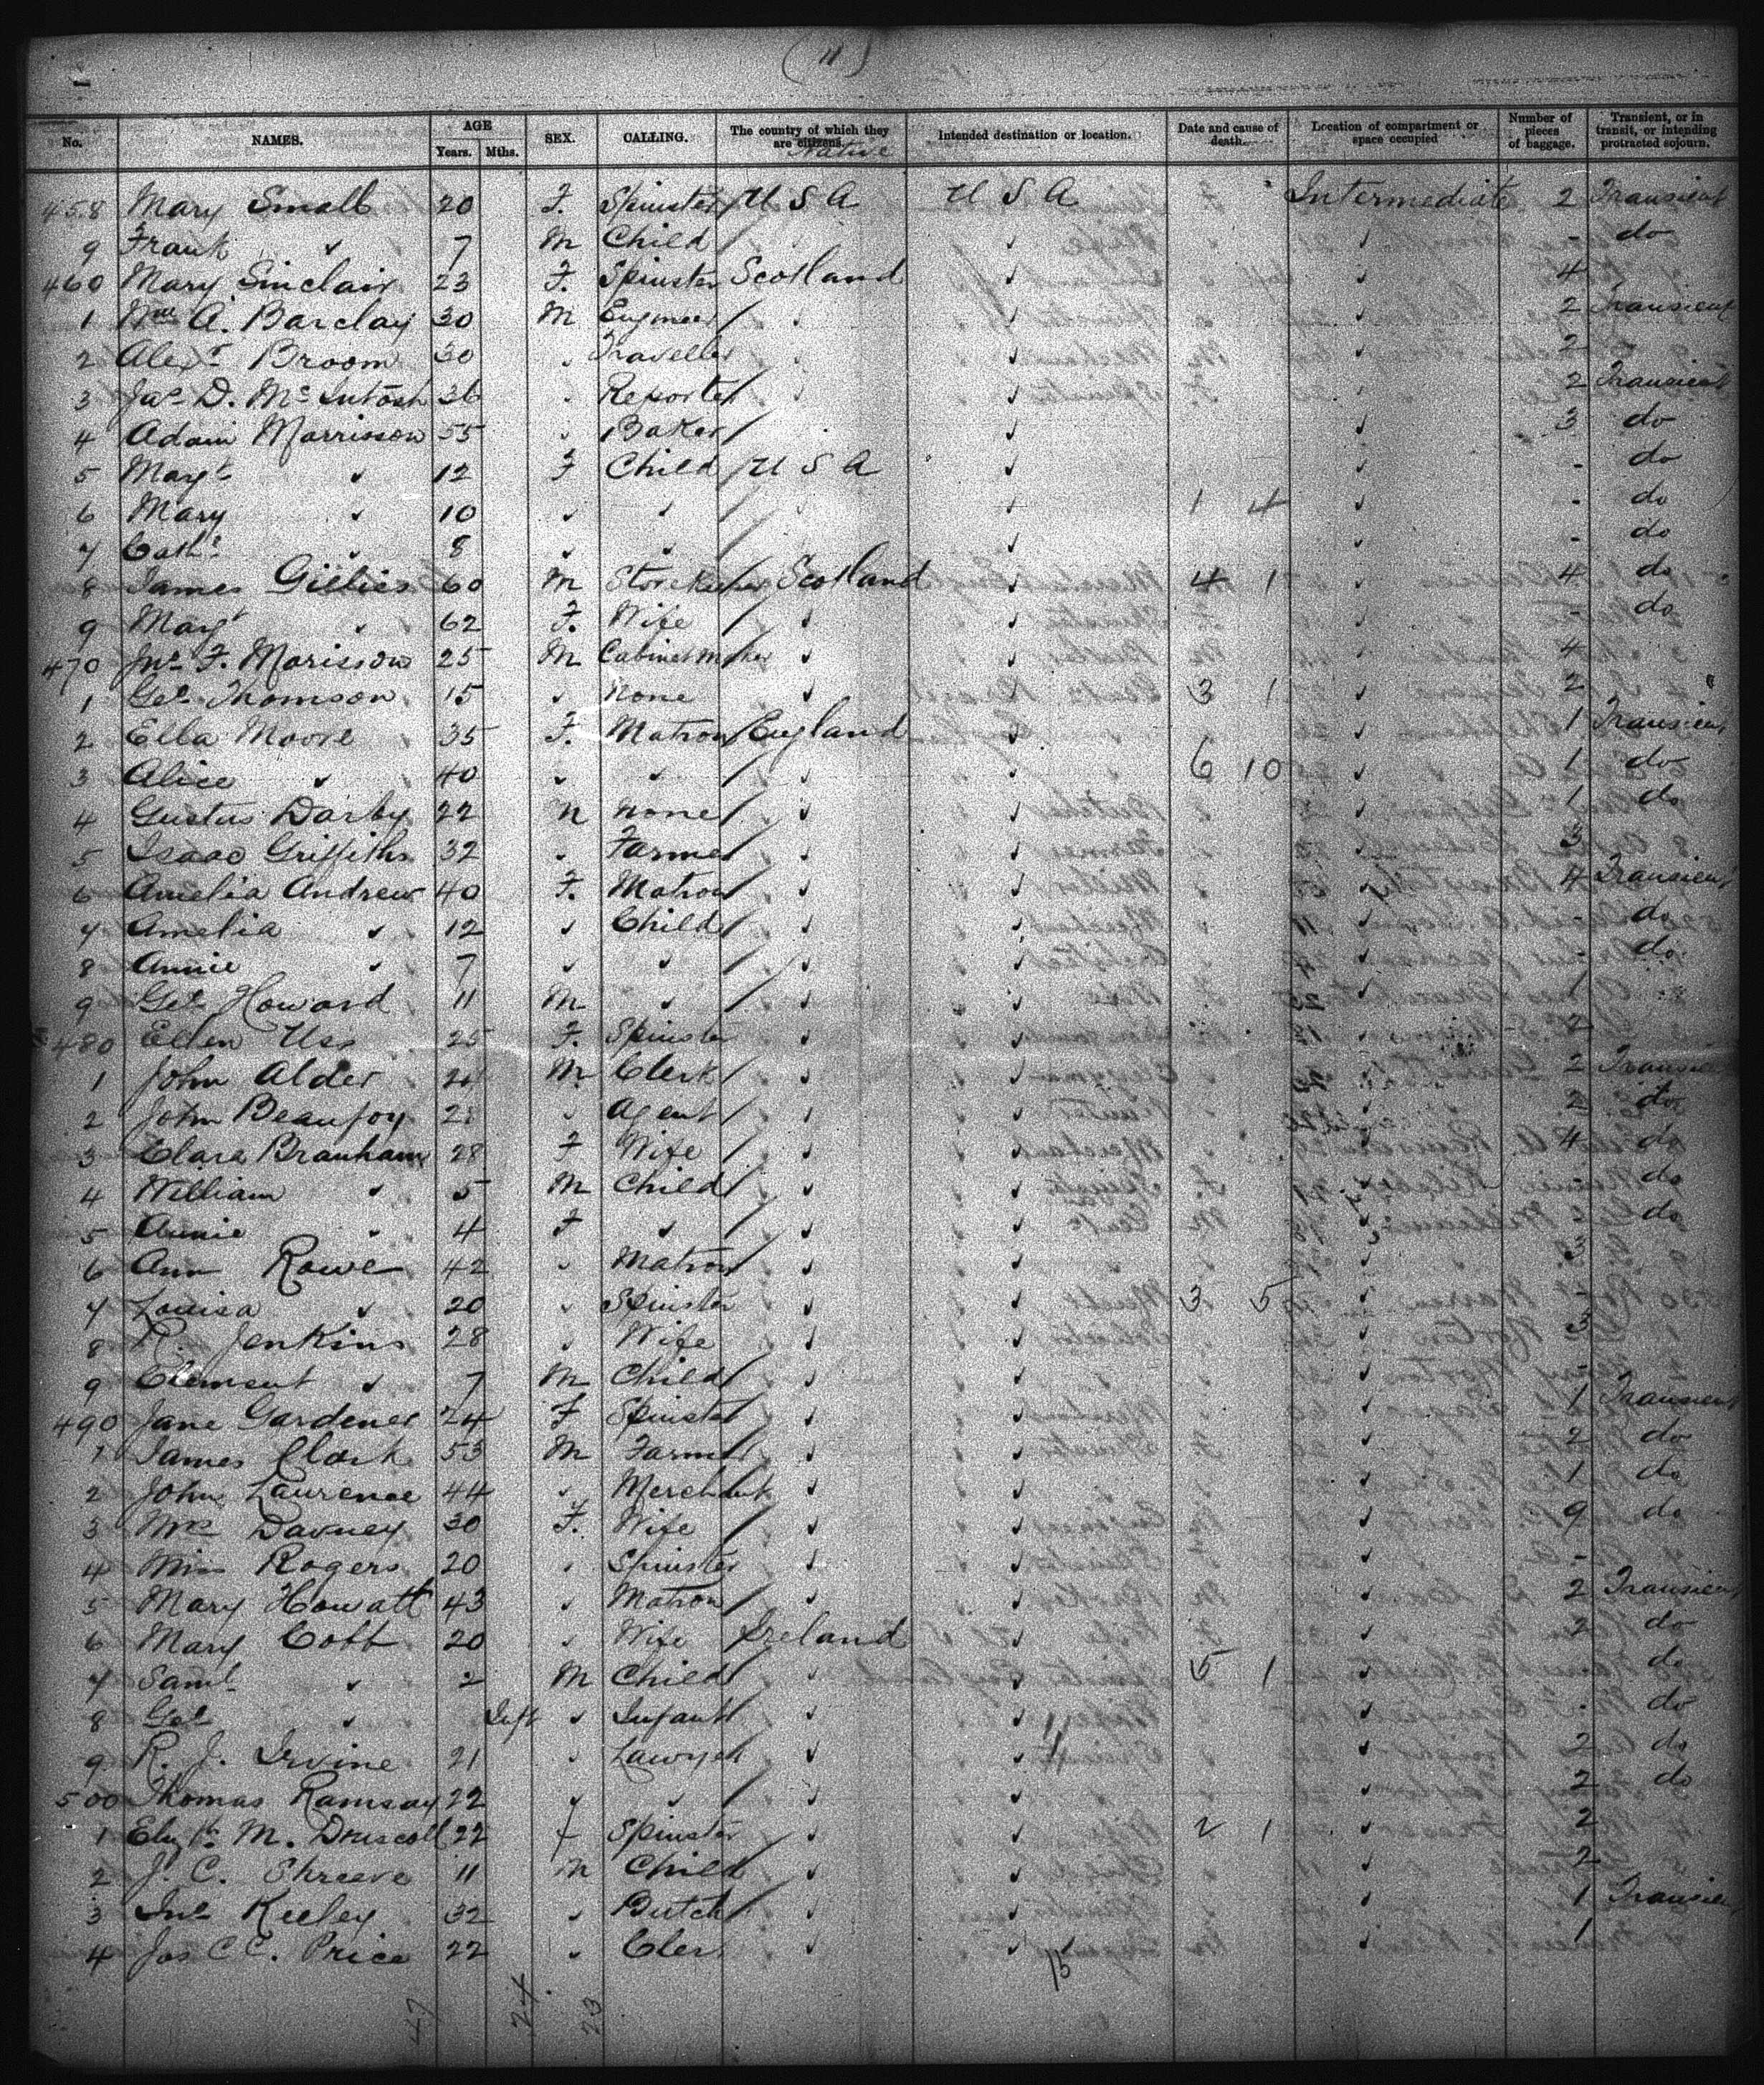 ( 11 )
No. NAMES. AGE Years. Mths. SEX. CALLING. The country of which they are citizens. Native Intended destination or location. Date and cause of death. Location of compartment or space occupied Number of pieces of baggage. Transient, or in transit, or intending protracted sojourn.
458 Mary Small 20 F. Spinster U S A U S A Intermediate 2 Transient
9 Frank ✓ 7 M Child ✓ ✓ - do
460 Mary Sinclair 23 F. Spinster Scotland ✓ ✓ 4
1 Wm A. Barclay 30 M Engineer ✓ ✓ ✓ 2 Transient
2 Alexr Broom 30 ✓ Traveller ✓ ✓ ✓ 2
3 Jas D. McIntosh 36 ✓ Reporter ✓ ✓ ✓ 2 Transient
4 Adam Morrisson 55 ✓ Baker ✓ ✓ 3 do
5 Margt ✓ 12 F Child U S A ✓ ✓ - do
6 Mary ✓ 10 ✓ ✓ ✓ 1 4 ✓ - do
7 Cathe ✓ 8 ✓ ✓ ✓ ✓ - do
8 James Gillies 60 M Storekeeper Scotland ✓ 4 1 ✓ 4 do
9 Margt ✓ 62 F. Wife ✓ ✓ ✓ - do
470 Jno F. Morisson 25 M Cabinetmaker ✓ ✓ ✓ 4
1 Geo Thomson 15 ✓ None ✓ ✓ 3 1 ✓ 2 "
2 Ella Moore 35 F. Matron England ✓ ✓ 1 Transient
3 Alice ✓ 40 ✓ ✓ ✓ ✓ 6 10 ✓ 1 do
4 Gustus Darby 22 M None ✓ ✓ ✓ 1 do
5 Isaac Griffiths 32 ✓ Farmer ✓ ✓ ✓ 3
6 Amelia Andrew 40 F. Matron ✓ ✓ ✓ 4 Transient
7 Amelia ✓ 12 ✓ Child ✓ ✓ ✓ - do
8 Annie ✓ 7 ✓ ✓ ✓ ✓ ✓ - do
9 Geo Howard 11 M ✓ ✓ ✓ ✓ 1
480 Ellen Uss 25 F. Spinster ✓ ✓ ✓ 2
1 John Alder M. Clerk ✓ ✓ ✓ 2 Transient
2 John Beaufoy ✓ Agent ✓ ✓ ✓ 2 do
3 Clara Branham 28 F Wife ✓ ✓ ✓ 4 do
4 William ✓ 5 M Child ✓ ✓ ✓ - do
5 Annie ✓ 4 F ✓ ✓ ✓ ✓ do
6 Ann Rowe 42 ✓ Matron ✓ ✓ ✓ 3
7 Louisa ✓ 20 ✓ Spinster ✓ ✓ 3 5 ✓ -
8 R. Jenkins 28 ✓ Wife ✓ ✓ ✓ 3
9 Clement ✓ 7 M Child ✓ ✓ ✓ -
490 Jane Gardener 24 F Spinster ✓ ✓ ✓ 1 Transient
1 James Clark 53 M Farmer ✓ ✓ ✓ 2 do
2 John Laurence 44 ✓ Merchant ✓ ✓ ✓ 1 do
3 Mrs Davney 30 F. Wife ✓ ✓ ✓ 9 do
4 Miss Rogers 20 ✓ Spinster ✓ ✓ ✓ -
5 Mary Howatt 43 ✓ Matron ✓ ✓ ✓ 2 Transient
6 Mary Cobb 20 ✓ Wife Ireland ✓ ✓ 2 do
7 Saml ✓ 2 M Child ✓ ✓ 5 1 ✓ do
8 Geo ✓ Inft ✓ Infant ✓ ✓ ✓ - do
9 R. J. Irvine 21 ✓ Lawyer ✓ ✓ ✓ 2 do
500 Thomas Ramsay 22 ✓ ✓ ✓ ✓ ✓ 2 do
1 Elizth M. Driscoll 22 f Spinster ✓ ✓ 2 1 ✓ 2
2 J. C. Shreeve 11 M Child ✓ ✓ ✓ 2
3 Jno Keeley 32 ✓ Butch ✓ ✓ ✓ 1 Transient
4 Jos C C. Price 22 ✓ Cler ✓ ✓ ✓ 1
15
47 24 23